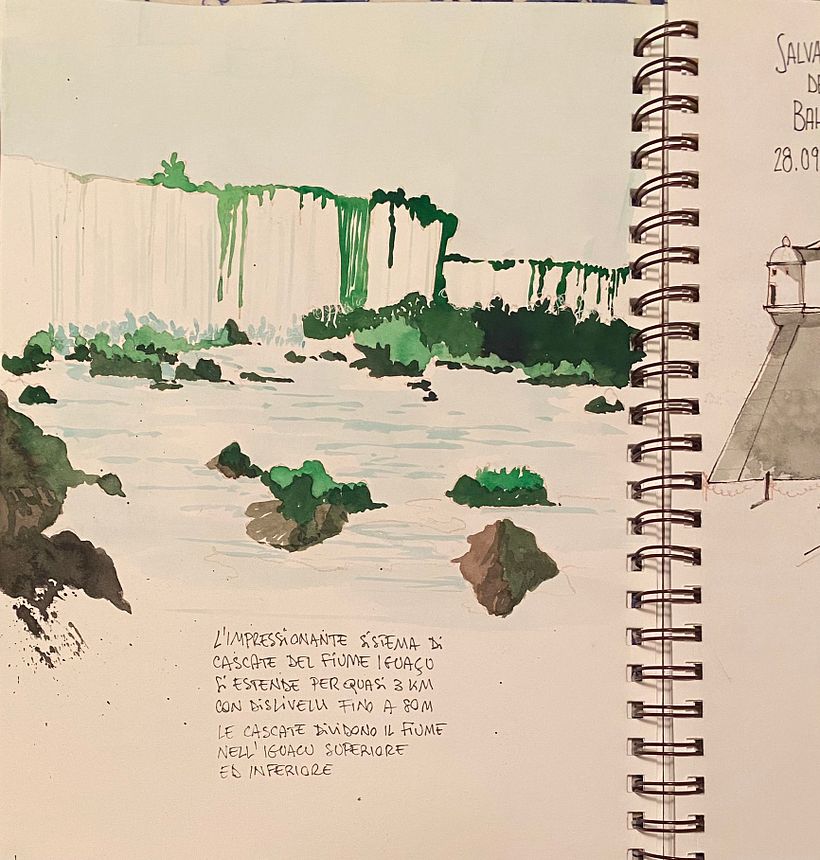 L'IMPRESSIONANTE SISTEMA DI
CASCATE DEL FIUME IGUAÇU
SI ESTENDE PER QUASI 3 KM
CON DISLIVELLI FINO A 80M
LE CASCATE DIVIDONO IL FIUME
NELL'IGUACU SUPERIORE
ED INFERIORE
SALVA
DE
BAH
28.09